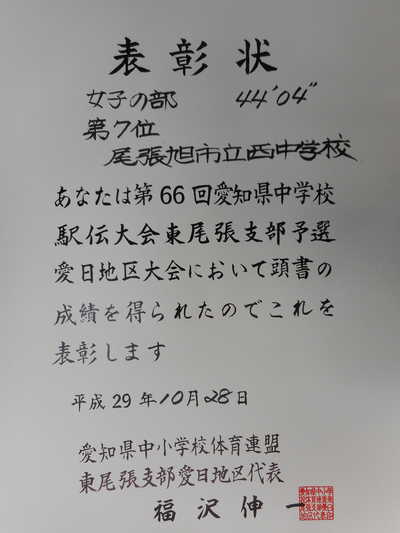 表彰状
女子の部 44'04"
第7位
尾張旭市立西中学校
あなたは第66回愛知県中学校
駅伝大会東尾張支部予選
愛日地区大会において頭書の
成績を得られたのでこれを
表彰します
平成29年10月28日
愛知県中小学校体育連盟
東尾張支部愛日地区代表
福沢伸一